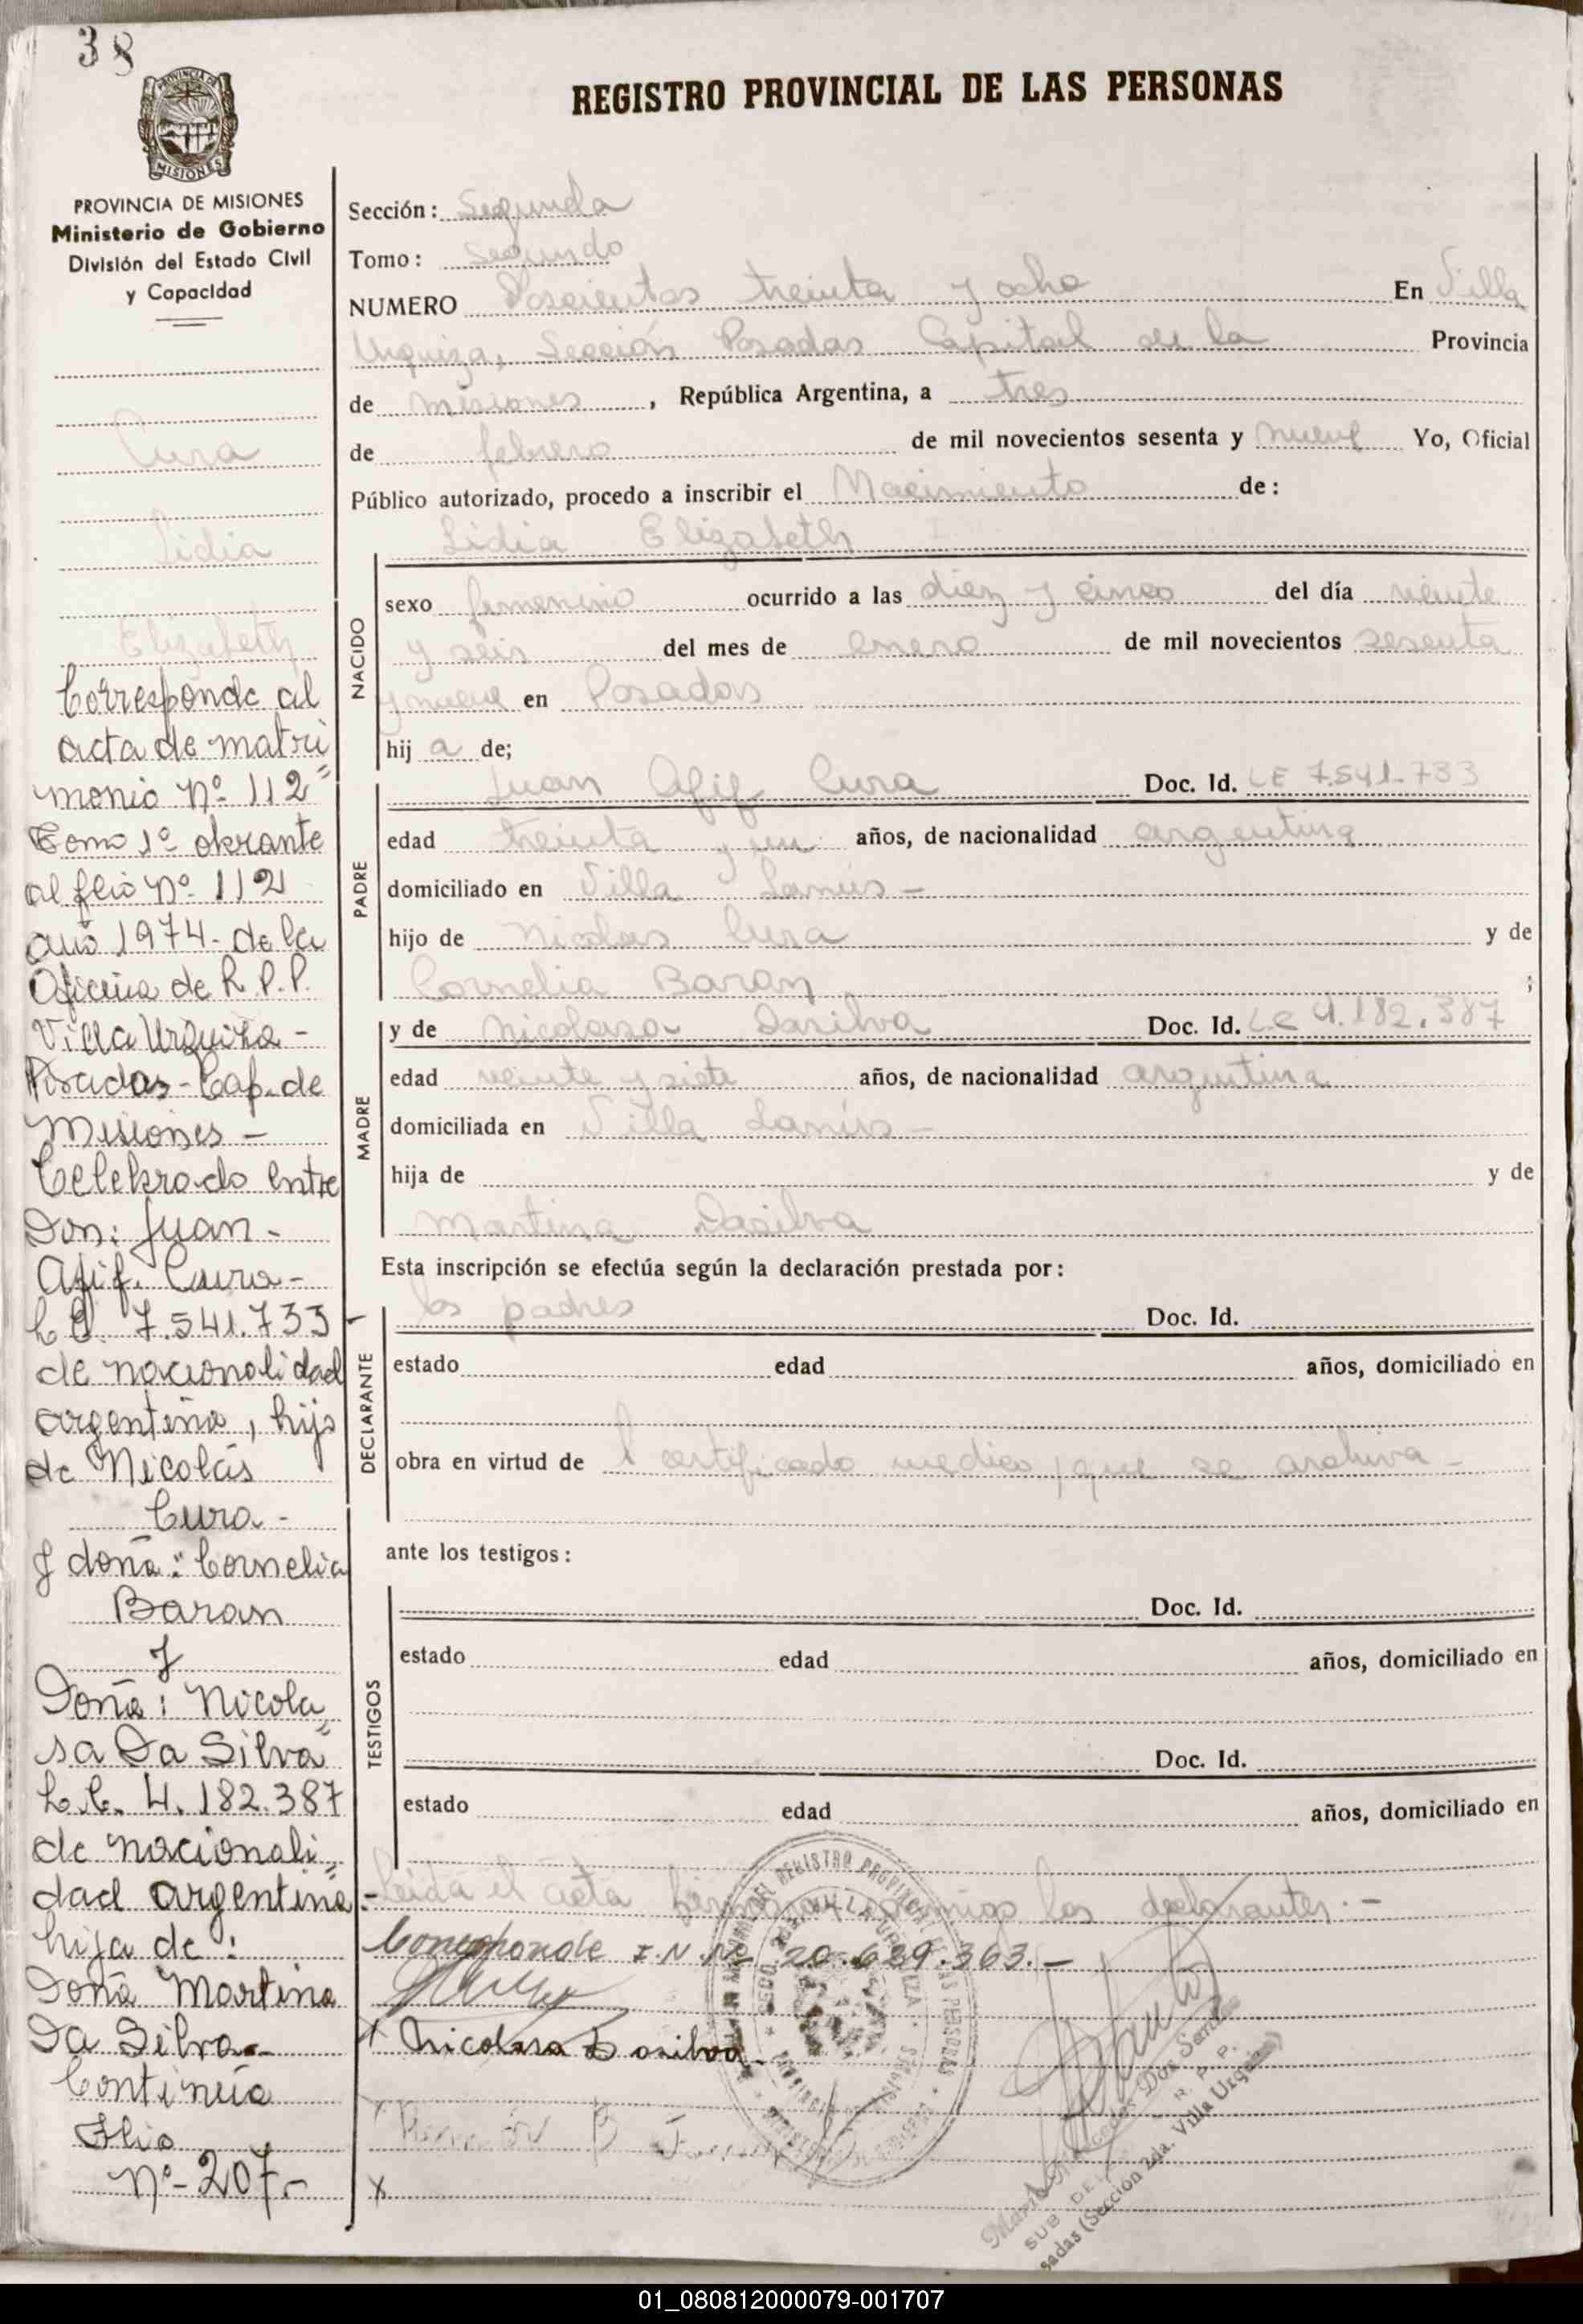 38
REGISTRO PROVINCIAL DE LAS PERSONAS
PROVINCIA DE MISIONES
PROVINCIA DE MISIONES
Ministerio de Gobierno
División del Estado Civil
y Capacidad
Cura
Lidia
Elizabeth
Corresponde al
acta de matri
monio Nº 112
Tomo 1º obrante
al flio Nº 112
año 1974- de la
Oficina de R.P.P.
Villa Urquiza -
Posadas - Cap. de
Misiones -
Celebrado entre
Don: Juan -
Afif. Cura -
L E. 7.541.733 -
de nacionalidad
argentina, hijo
de Nicolás
Cura -
y doña: Cornelia
Baran
y
Doña: Nicola
sa Da Silva
L.C. 4.182.387
de nacionali
dad argentina -
hija de:
Doña Martina
Da Silva -
Continúa
Flio
Nº- 207.-
Sección: Segunda
Tomo: Segundo
NUMERO Doscientos treinta y ocho En Villa
Urquiza, Sección Posadas Capital de la Provincia
de Misiones, República Argentina, a tres
de febrero de mil novecientos sesenta y nueve Yo, Oficial
Público autorizado, procedo a inscribir el Nacimiento de:
Lidia Elizabeth
NACIDO
sexo femenino ocurrido a las diez y cinco del día veinte
y seis del mes de enero de mil novecientos sesenta
y nueve en Posadas
hij a de;
PADRE
Juan Afif Cura Doc. Id. LE 7.541.733
edad treinta y un años, de nacionalidad argentina
domiciliado en Villa Lanús -
hijo de Nicolas Cura y de
Cornelia Baran ;
MADRE
y de Nicolasa Dasilva Doc. Id. L.C 4.182.387
edad veinte y siete años, de nacionalidad argentina
domiciliada en Villa Lanús -
hija de y de
Martina Dasilva
Esta inscripción se efectúa según la declaración prestada por:
DECLARANTE
los padres Doc. Id.
estado edad años, domiciliado en
obra en virtud de certificado medico, que se archiva -
ante los testigos:
TESTIGOS
Doc. Id.
estado edad años, domiciliado en
Doc. Id.
estado edad años, domiciliado en
Leida el acta firman conmigo los declarantes. -
Corresponde I.N.Nº 20.629.363. -
Nicolasa Dasilva
X
SUB DEL R. P. P.
sadas (Sección 2da. Villa Urquiza)
01_080812000079-001707